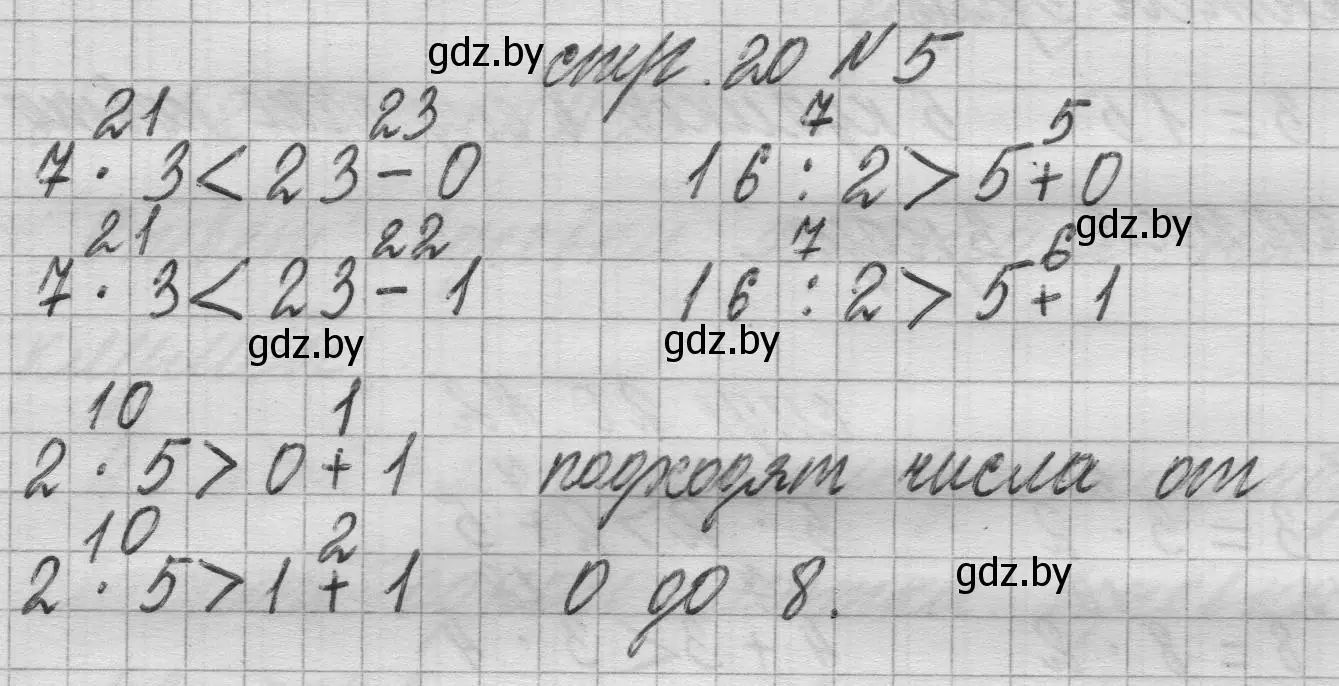 gdz.by стр. 20 № 5
21 23 7 5
7 · 3 < 23 - 0 16 : 2 > 5 + 0
gdz.by
21 22 7 6
7 · 3 < 23 - 1 16 : 2 > 5 + 1
gdz.by gdz.by
10 1
2 · 5 > 0 + 1 подходят числа от
10 2
2 · 5 > 1 + 1 0 до 8. gdz.by